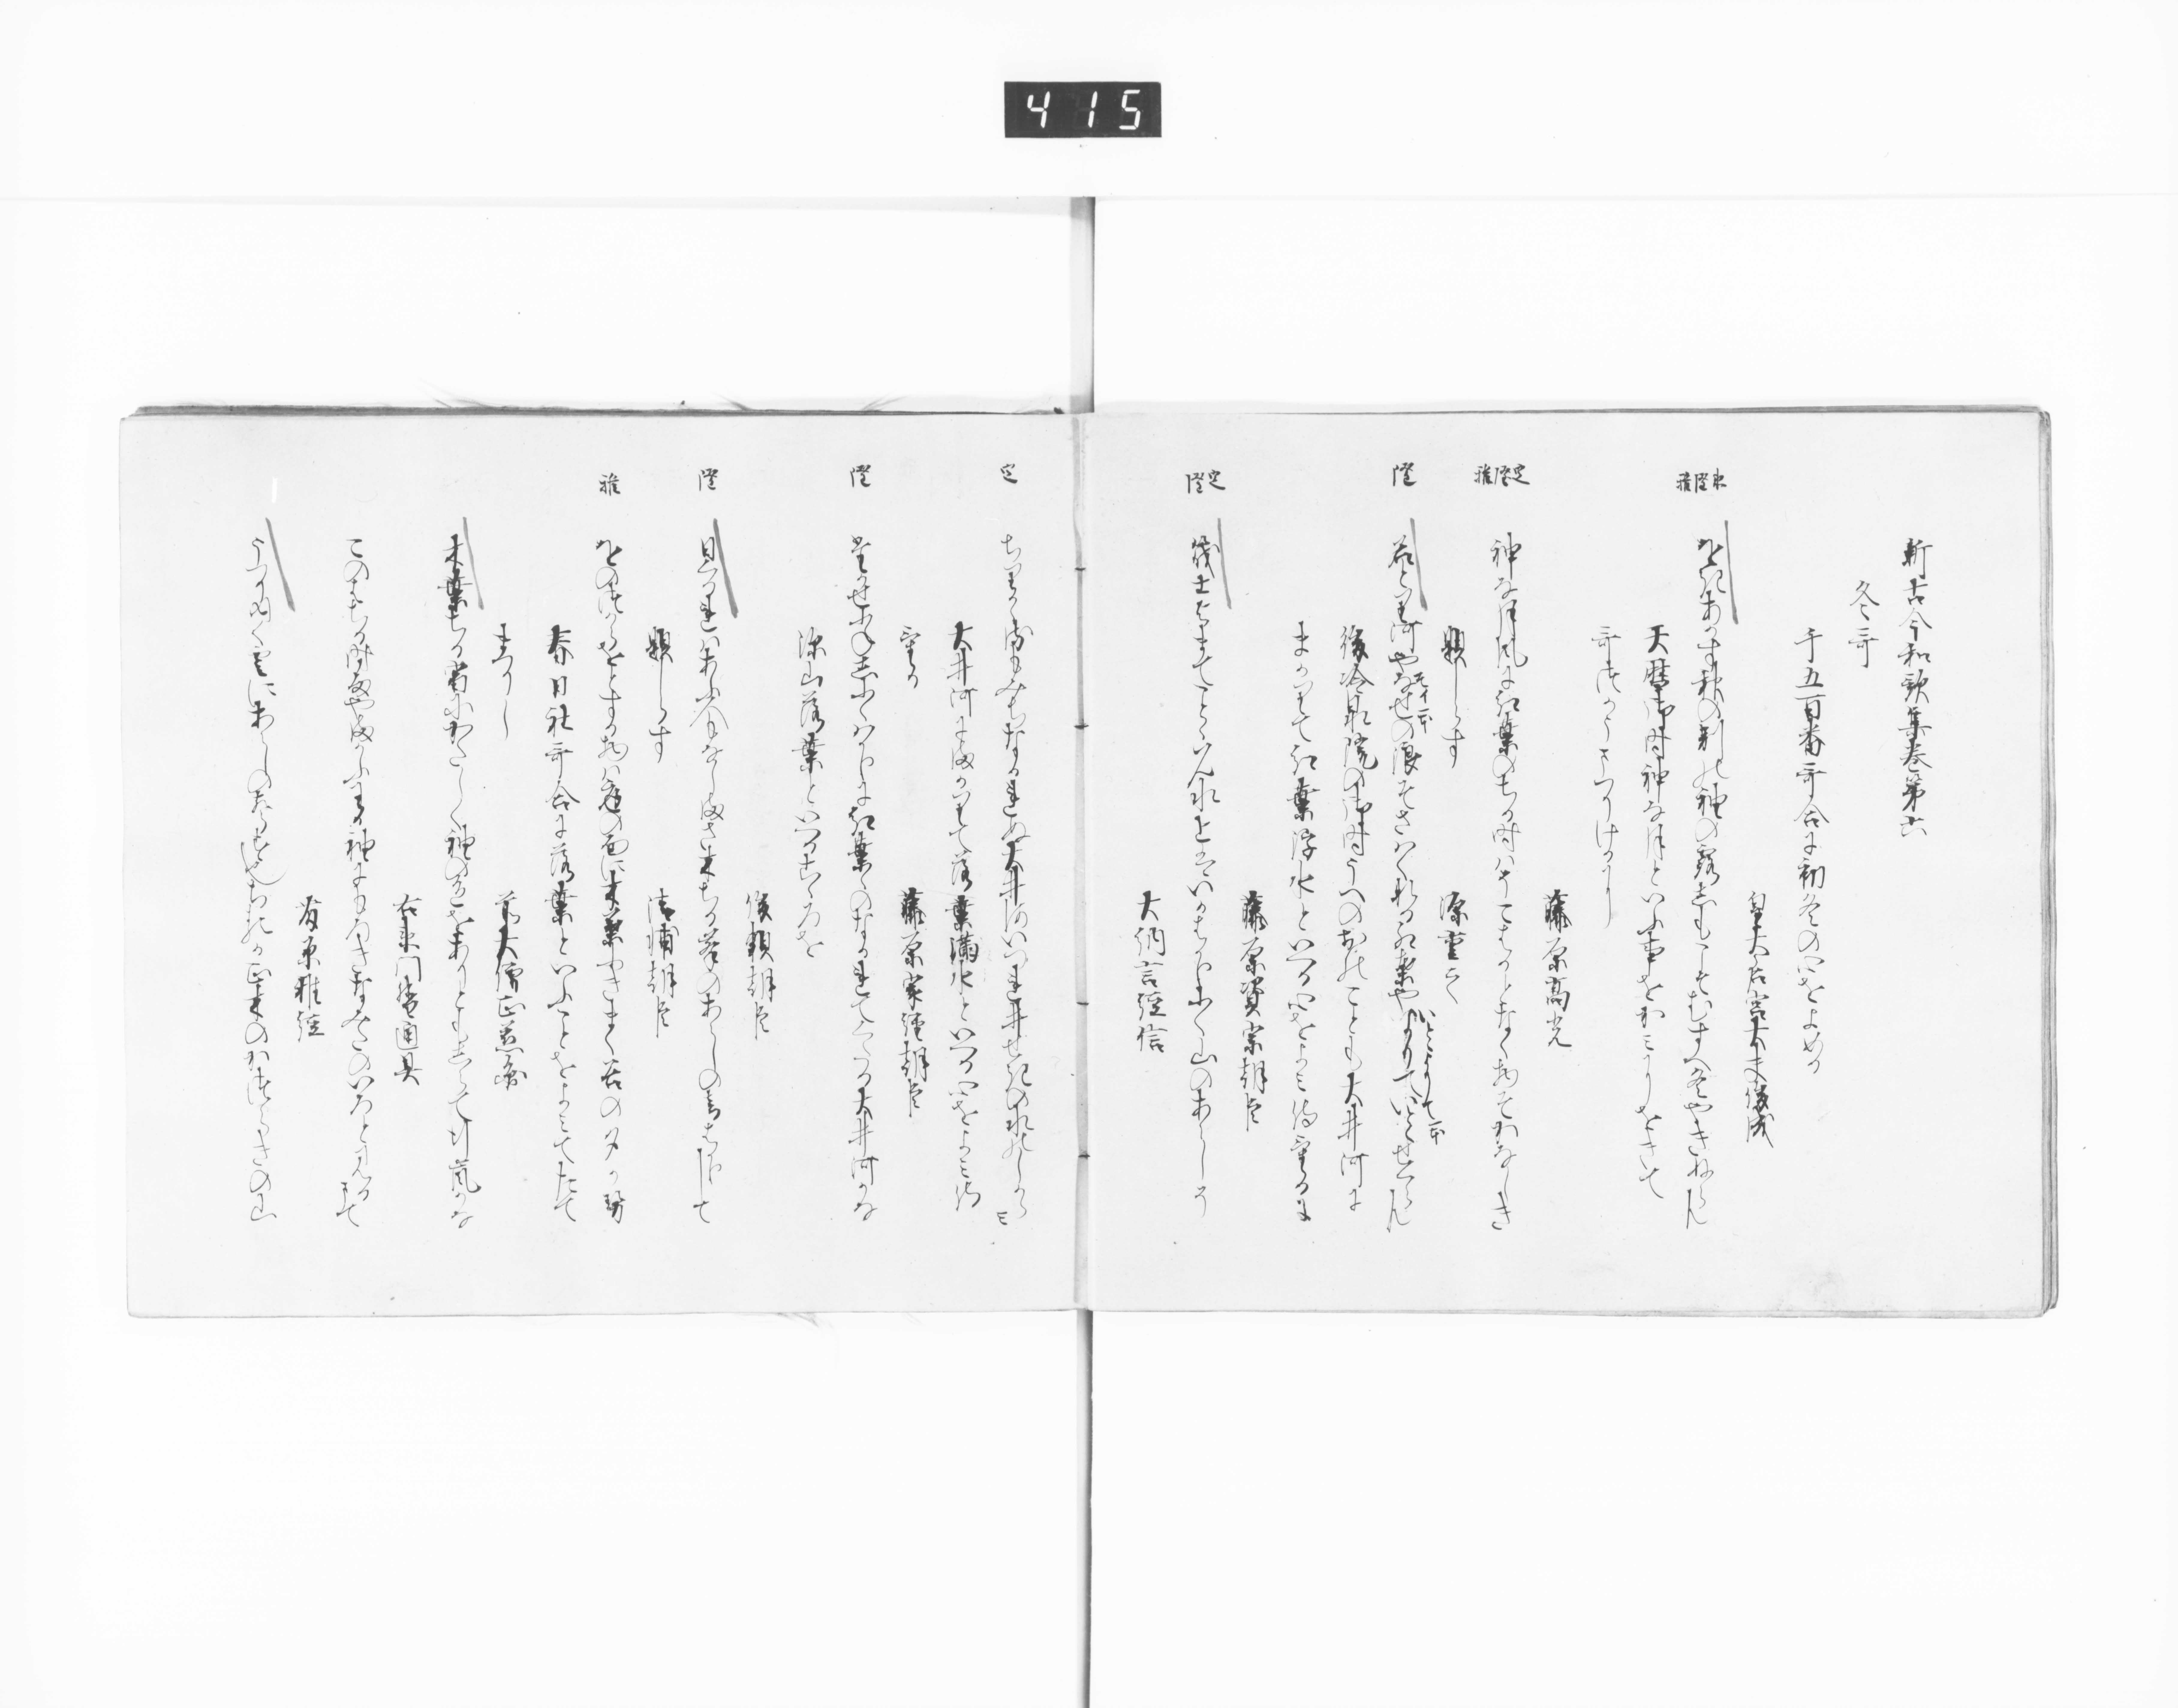 415
新古今和歌集巻第六
冬哥
千五百番哥合に初冬の心をよめる
皇太后宮大夫俊成
衣隆雅
をきあかす秋の別の袖の露しもこそむすへ冬やきぬらん
天暦御時神な月といふ事をかみにをきて
哥つかうまつりけるに
藤原高光
定隆雅
神な月風に紅葉のちる時はそこはかとなく物そかなしき
題しらす
源重之
隆
名とり河やなせの浪そさはくなる紅葉やいとゝよりてせくらん
モイ本
いとゝよりて本
後冷泉院御時うへのおのことも大井河に
まかりて紅葉浮水といへる心をよみ侍けるに
藤原資宗朝臣
定隆
筏士よまてことゝはん水上はいかはかりふく山のあらしそ
大納言経信
定
ちりかゝる紅葉なかれぬ大井河いつれ井せきの水のしからみ
大井河にまかりて落葉満水といへる心をよみ侍
ける
藤原家経朝臣
隆
たかせ舟しふくはかりに紅葉ゝのなかれてくたる大井河かな
深山落葉といへるこゝろを
俊頼朝臣
隆
日くるれはあふ人もなしまさ木ちる峯のあらしの音はかりして
題しらす
清輔朝臣
雅
をのつからをとする物は庭の面に木葉ふきまく谷の夕かせ
春日社哥合に落葉といふことをよみてたて
まつりし
前大僧正慈円
木葉ちる宿にかたしく袖の色をありともしらてゆく嵐かな
右衛門督通具
このはちる時雨やまかふわか袖にもろき涙のいろと見るまて
藤原雅経
うつりゆく雲にあらしのこゑすなりちるか正木のかつらきの山